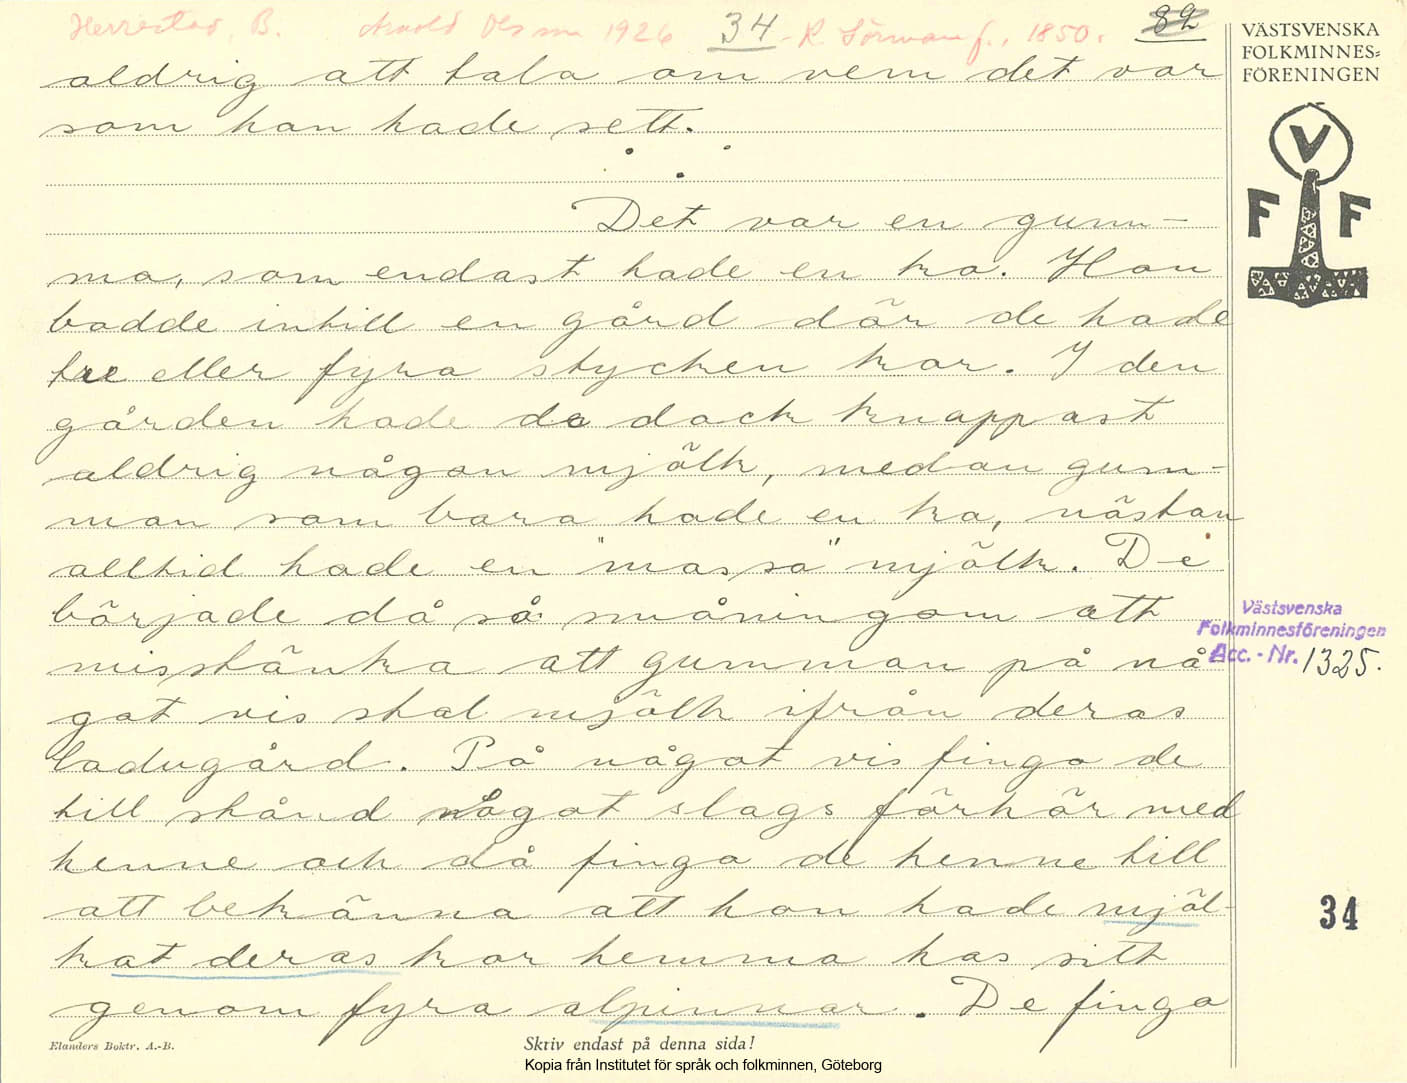 Herrestad, B. Arnold Olsson 1926 34 R Sörman f., 1850. 82
VÄSTSVENSKA
FOLKMINNES=
FÖRENINGEN
V
F F
aldrig att tala om vem det var
som han hade sett.
Det var en gum-
ma, som endast hade en ko. Hon
bodde intill en gård där de hade
tre eller fyra stycken kor. I den
gården hade de dock knappast
aldrig någon mjölk, medan gum-
man som bara hade en ko, nästan
alltid hade en "massa" mjölk. De
började då så småningom att
misstänka att gumman på nå-
got vis stal mjölk ifrån deras
ladugård. På något vis fingo de
till stånd något slags förhör med
henne och då fingo de henne till
att bekänna att hon hade mjöl-
kat deras kor hemma hos sitt
genom fyra alpinnar. De fingo
Västsvenska
Folkminnesföreningen
Acc. - Nr. 1325.
34
Elanders Boktr. A.-B.
Skriv endast på denna sida!
Kopia från Institutet för språk och folkminnen, Göteborg